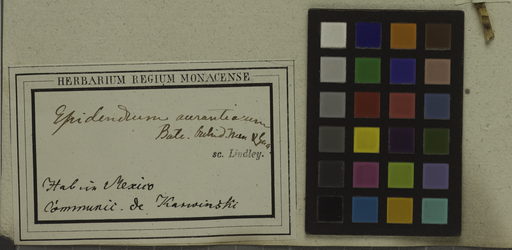 HERBARIUM REGIUM MONACENSE
Epidendrum aurantiacum
Bate.
sc. Lindley.
Hab. in Mexico
Communic. de Karwinski